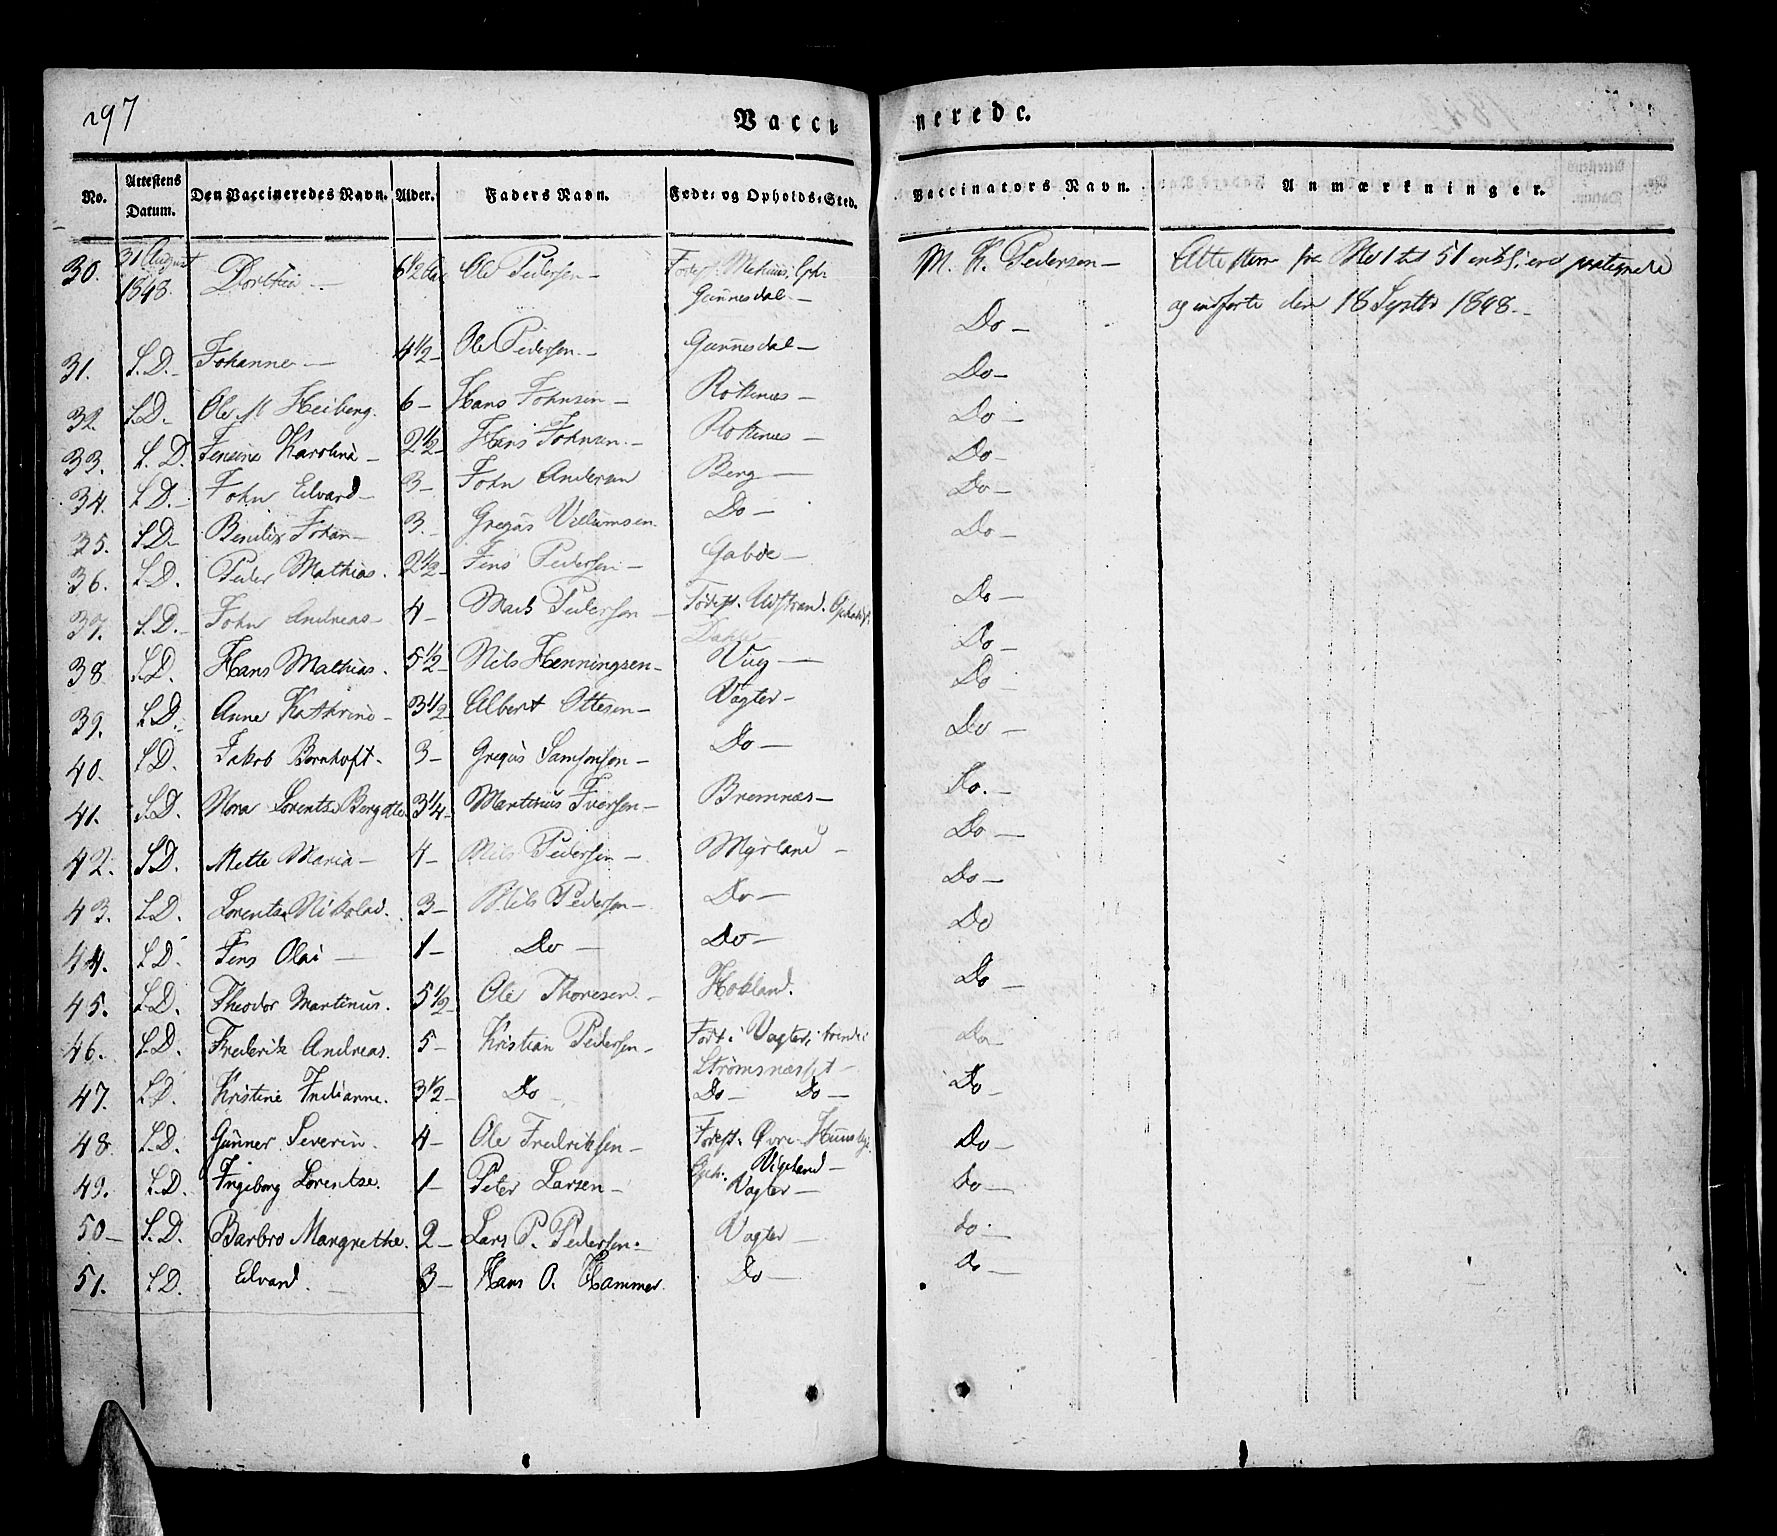 297
Vaccinerede.
No. Attestens Datum. Den Vaccineredes Navn. Alder. Faders Navn. Føde- og Opholds-Sted. Vaccinators Navn. Anmærkninger.
30. 31 August 1848. Dorthea — 6 1/2 Ole Pedersen — Gunnesdal — M. K. Pedersen — Attesten fra No 1 til 51 er protegnede
og indførte den 18 Septbr 1848. —
31. S. D. — Johanne — 4 1/2 — Ole Pedersen — Gunnesdal — Do —
32. S. D. — Ole M Heiberg. 6 — Hans Johnsen — Røkenes — Do —
33. S. D. Jensine Karoline — 2 1/2 Hans Johnsen — Røkenes — Do —
34. S. D. — John Edvard — 3 — John Andersen Berg — Do —
35. S D — Bendix Johan — 3. Gregus Villumsen. Do — Do —
36. S D. Peder Mathias. 2 1/2 — Jens Pedersen — Gaboe — Do —
37. S. D. — John Andreas — 4 — Mads Pedersen — Fødest. Opholdst. Do —
38. S. D. Hans Mathias. 5 1/2 — Nils Henningsen — Vug — Do —
39. S. D. Anne Kathrine — 3 1/2 Albert Ottesen — Vagter — Do
40. S D. Jakob Bornhoft. 3 — Gregus Samsonsen — Do — Do —
41. S. D. Nora Lorentse Bergette 3 1/4 — Martinus Iversen — Bremnæs — Do. —
42. S D. Mette Maria — 4 — Nils Pedersen — Myrland — Do —
43. S. D. Lorentse Nikolai. 3 — Nils Pedersen — Do — Do —
44. S D. Jens Olai — 1 — Do — Do — Do
45. S. D. Theodor Martinus. 5 1/2 — Ole Thoresen — Hokland. Do —
46. S. D. Frederik Andreas. 5 — Kristian Pedersen — Født i Vagter,
Strømsnæsset — Do —
47. S D. Kristine Indianne. 3 1/2 — Do — Do — Do — Do —
48. S. D. Gunner Severin. 4 — Ole Fredriksen — Fødest. Øvre
Oph. Vigeland — Do —
49. S. D. Ingeborg Lorentse. 1 — Peter Larsen — Vagter — Do —
50 — S. D. Barbro Margrethe. 2 — Lars P. Pedersen. — Vagter — do —
51. S D. Edvard. — 3 — Hans O. Hammer. Do — Do —